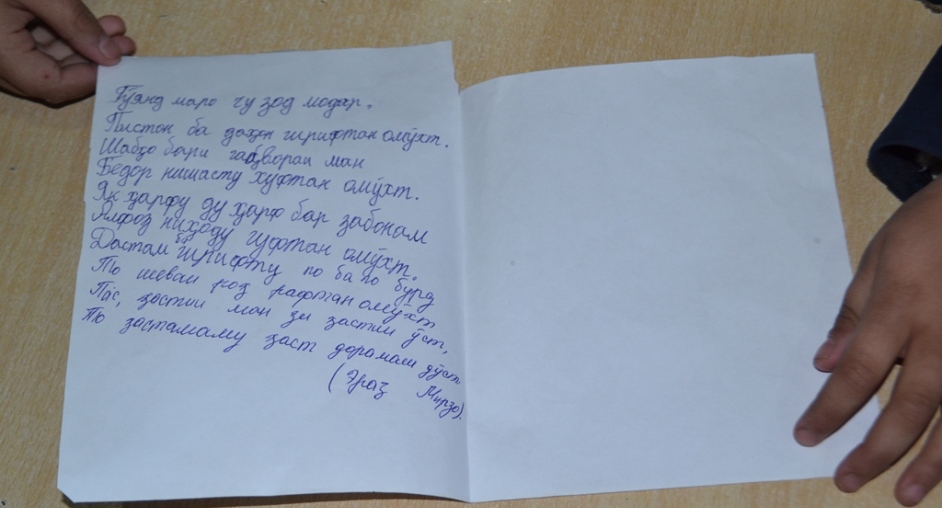 Гӯянд маро чу зод модар,
Пистон ба даҳон гирифтан омӯхт.
Шабҳо бари гаҳвораи ман
Бедор нишасту хуфтан омӯхт.
Як ҳарфу ду ҳарф бар забонам
Алфоз ниҳоду гуфтан омӯхт.
Дастам бигирифту по ба по бурд
То шеваи роҳ рафтан омӯхт
Пас, ҳастии ман зи ҳастии ӯст,
То ҳастаму ҳаст дорамаш дӯст
(Эраҷ Мирзо).